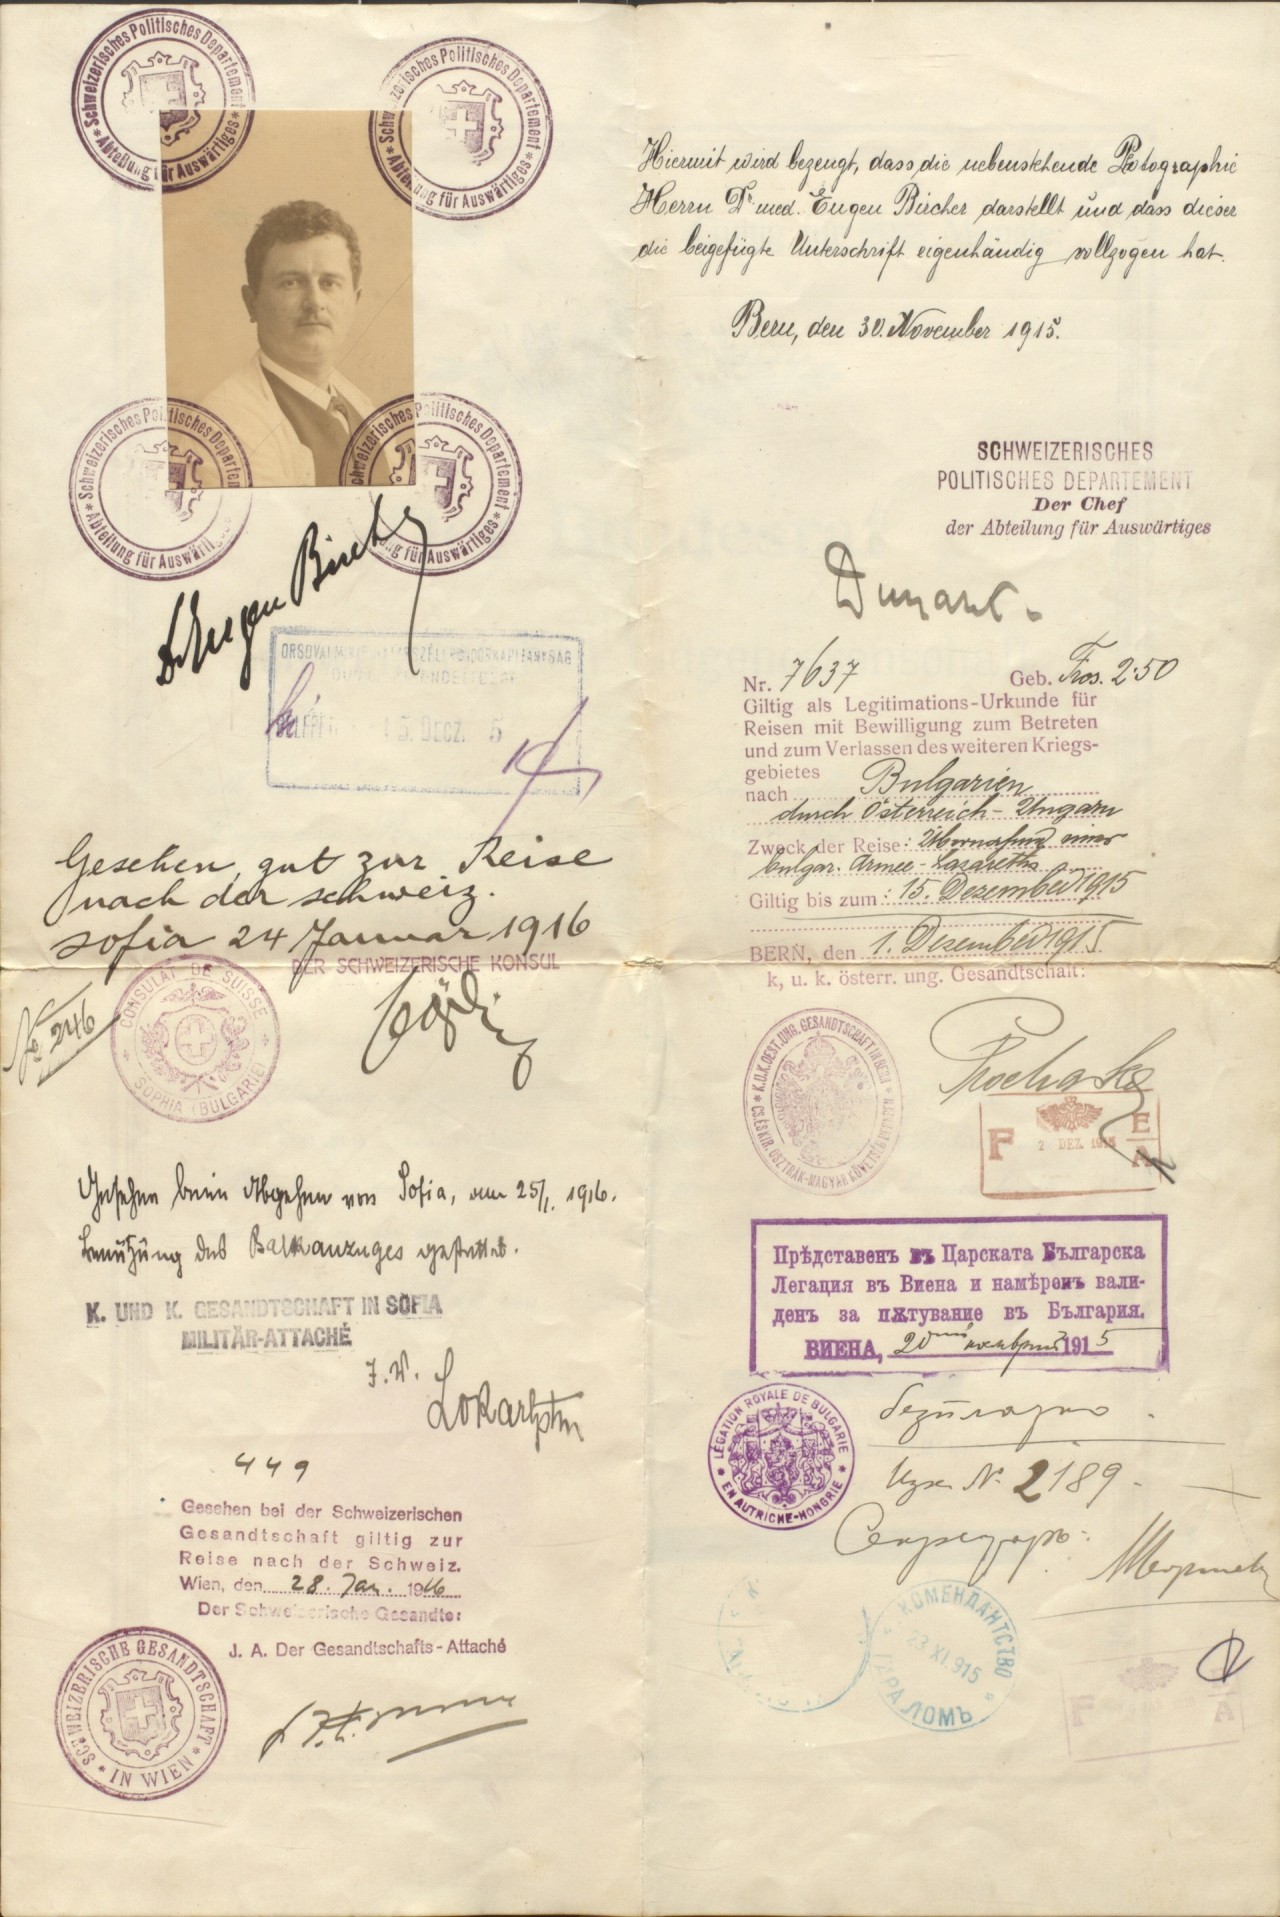 Schweizerisches Politisches Departement
* Abteilung für Auswärtiges *
Schweizerisches Politisches Departement
* Abteilung für Auswärtiges *
Schweizerisches Politisches Departement
* Abteilung für Auswärtiges *
Schweizerisches Politisches Departement
* Abteilung für Auswärtiges *
Dr Eugen Bircher
15. DECZ. 5
Gesehen, gut zur Reise
nach der Schweiz.
Sofia 24 Januar 1916
DER SCHWEIZERISCHE KONSUL
No 246
CONSULAT DE SUISSE
SOPHIA (BULGARIE)
Gesehen beim Abgehen von Sofia, am 25/I. 1916.
Benützung des Balkanzuges gestattet.
K. UND K. GESANDTSCHAFT IN SOFIA
MILITÄR-ATTACHÉ
449
Gesehen bei der Schweizerischen
Gesandtschaft giltig zur
Reise nach der Schweiz.
Wien, den 28. Jan. 1916
Der Schweizerische Gesandte:
J. A. Der Gesandtschafts-Attaché
SCHWEIZERISCHE GESANDTSCHAFT
* IN WIEN *
Hiermit wird bezeugt, dass die nebenstehende Photographie
Herrn Dr. med. Eugen Bircher darstellt und dass dieser
die beigefügte Unterschrift eigenhändig vollzogen hat.
Bern, den 30. November 1915.
SCHWEIZERISCHES
POLITISCHES DEPARTEMENT
Der Chef
der Abteilung für Auswärtiges
Dunant.
Nr. 7637 Geb. Frcs. 2.50
Giltig als Legitimations-Urkunde für
Reisen mit Bewilligung zum Betreten
und zum Verlassen des weiteren Kriegs-
gebietes
nach Bulgarien
durch Österreich-Ungarn
Zweck der Reise: Übernahme eines
bulgar. Armee-Lazareths
Giltig bis zum: 15. Dezember 1915
BERN, den 1. Dezember 1915
k. u. k. österr. ung. Gesandtschaft:
Prochaska
K.U.K. OEST. UNG. GESANDTSCHAFT IN BERN
F 2 DEZ. 1915 E A
Прѣдставенъ въ Царската Българска
Легация въ Виена и намѣренъ вали-
денъ за пѫтуване въ България.
ВИЕНА, 20 ноемврий 1915
LÉGATION ROYALE DE BULGARIE
* EN AUTRICHE-HONGRIE *
безплатно.
Изх. №. 2189.
Секретарь:
КОМЕНДАНТСТВО
23 XI. 915
ГАРА ЛОМЪ
F A